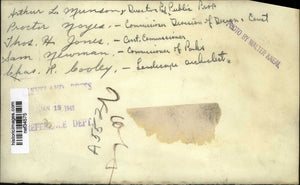 Arthur L. Munson, Director of Public Prop
Proctor Noyes, - Commissioner Division of Design & Const
Thos. H. Jones, - Const. Commissioner
Sam. Newman, - Commissioner of Parks
Chas. R. Cooley, - Landscape architect
PHOTO BY WALTER KNEAL
CLEVELAND PRESS
JAN 15 1941
REFERENCE DEPT.
historicimages.com